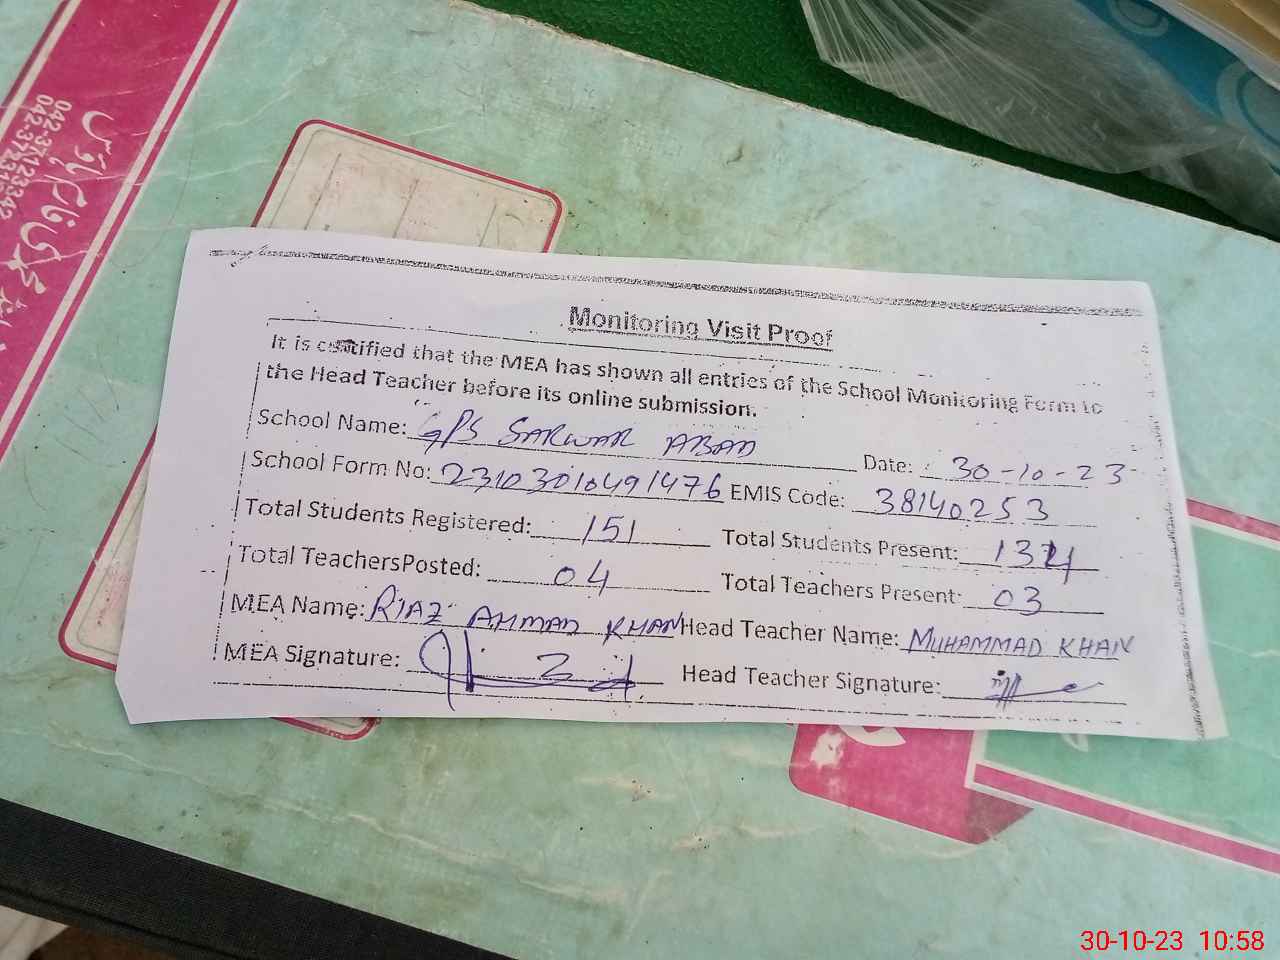 042-37123342
Monitoring Visit Proof
It is certified that the MEA has shown all entries of the School Monitoring Form to
the Head Teacher before its online submission.
School Name: GPS SARWAR ABAD Date: 30-10-23
School Form No: 23103010491476 EMIS Code: 38140253
Total Students Registered: 151 Total Students Present: 134
Total TeachersPosted: 04 Total Teachers Present: 03
MEA Name: RIAZ AHMAD KHAN Head Teacher Name: MUHAMMAD KHAN
MEA Signature: Head Teacher Signature:
30-10-23 10:58